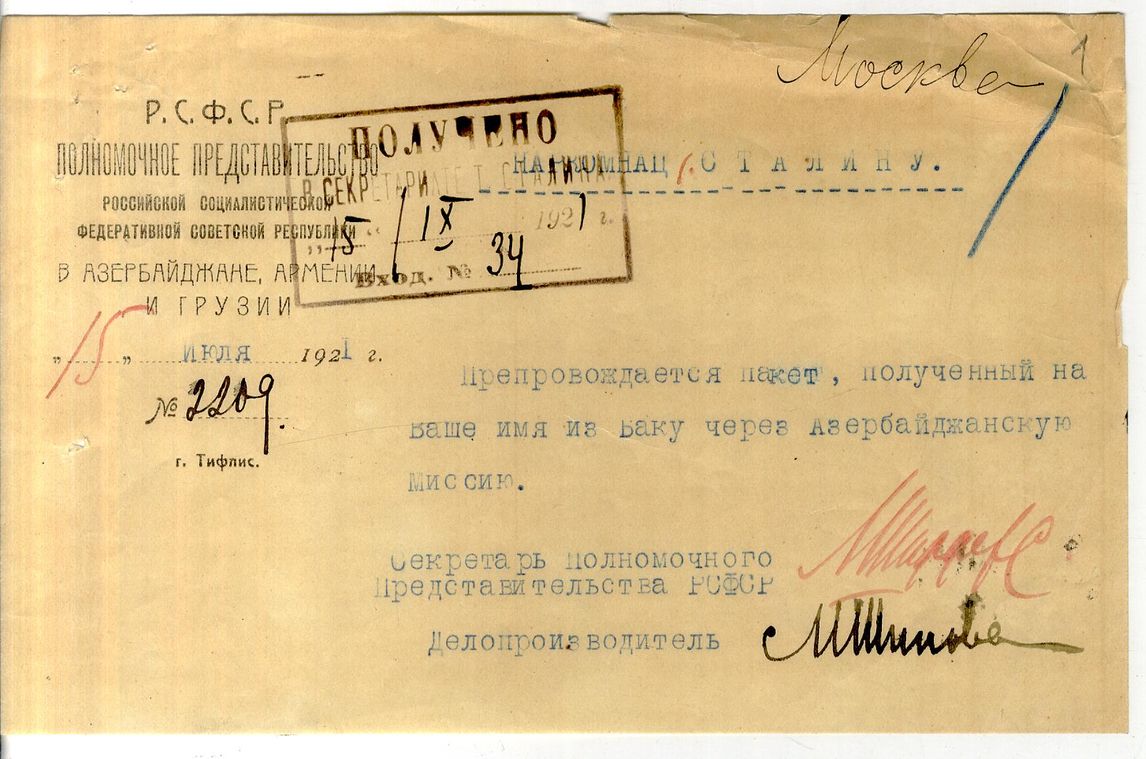 Москва
1
Р.С.Ф.С.Р.
ПОЛНОМОЧНОЕ ПРЕДСТАВИТЕЛЬСТВО
РОССИЙСКОЙ СОЦИАЛИСТИЧЕСКОЙ
ФЕДЕРАТИВНОЙ СОВЕТСКОЙ РЕСПУБЛИКИ
В АЗЕРБАЙДЖАНЕ, АРМЕНИИ
И ГРУЗИИ
"15" ИЮЛЯ 1921 г.
№ 2209.
г. Тифлис.
ПОЛУЧЕНО
В СЕКРЕТАРИАТЕ Т. СТАЛИНА
"15" IX 1921 г.
Вход. № 34
НАРКОМНАЦ СТАЛИНУ.
Препровождается пакет, полученный на
Ваше имя из Баку через Азербайджанскую
Миссию.
Секретарь Полномочного
Представительства РСФСР
Делопроизводитель